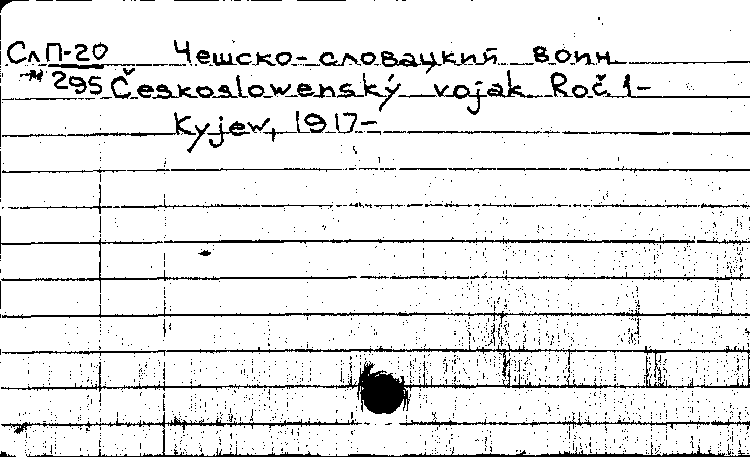 СлП-20 Чешско-словацкий воин
№ 295 Českoslowenský vojak Roč 1-
Kyjew, 1917-